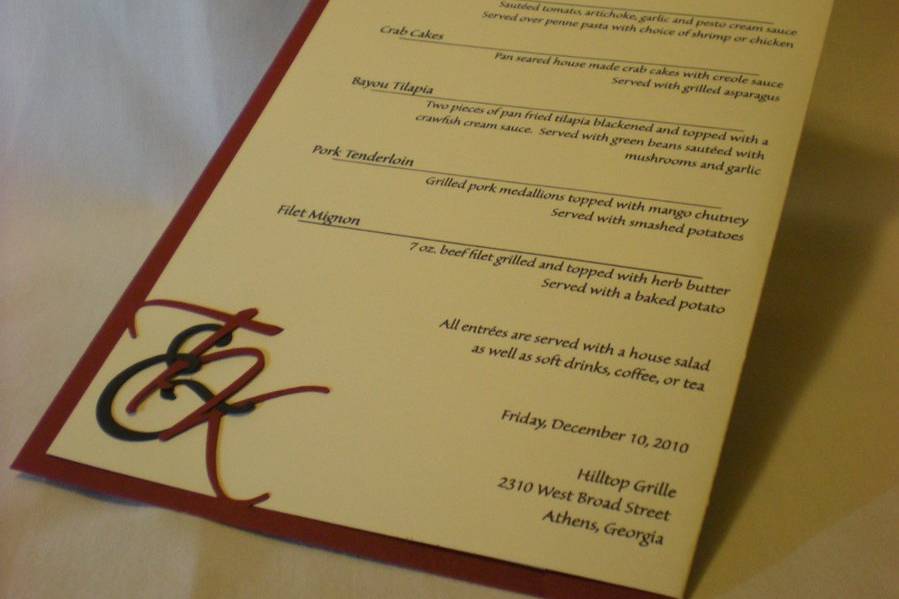 Sautéed tomato, artichoke, garlic and pesto cream sauce
Served over penne pasta with choice of shrimp or chicken
Crab Cakes
Pan seared house made crab cakes with creole sauce
Served with grilled asparagus
Bayou Tilapia
Two pieces of pan fried tilapia blackened and topped with a
crawfish cream sauce. Served with green beans sautéed with
mushrooms and garlic
Pork Tenderloin
Grilled pork medallions topped with mango chutney
Served with smashed potatoes
Filet Mignon
7 oz. beef filet grilled and topped with herb butter
Served with a baked potato
All entrées are served with a house salad
as well as soft drinks, coffee, or tea
Friday, December 10, 2010
Hilltop Grille
2310 West Broad Street
Athens, Georgia
&
K